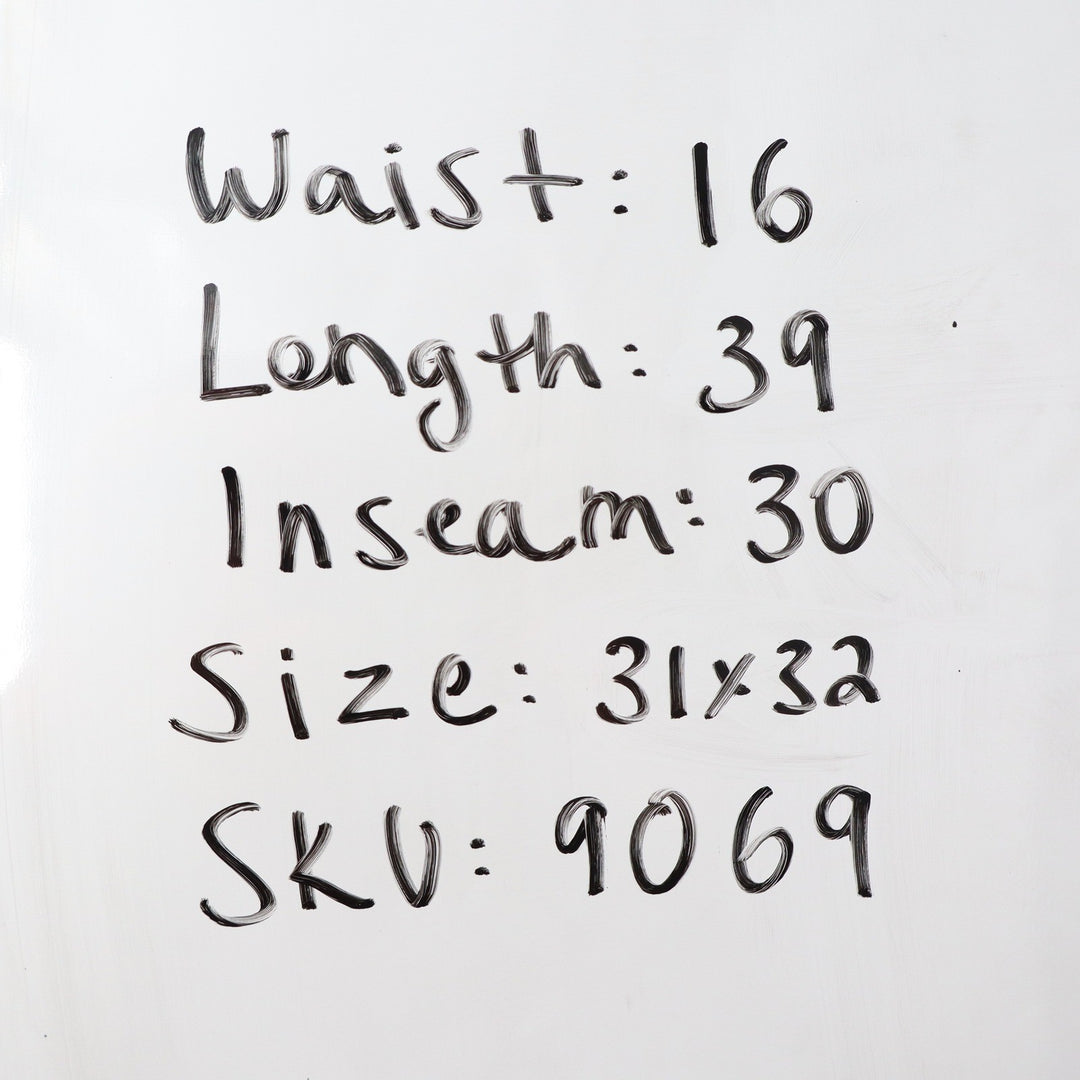 Waist: 16
Length: 39
Inseam: 30
Size: 31x32
SKU: 9069